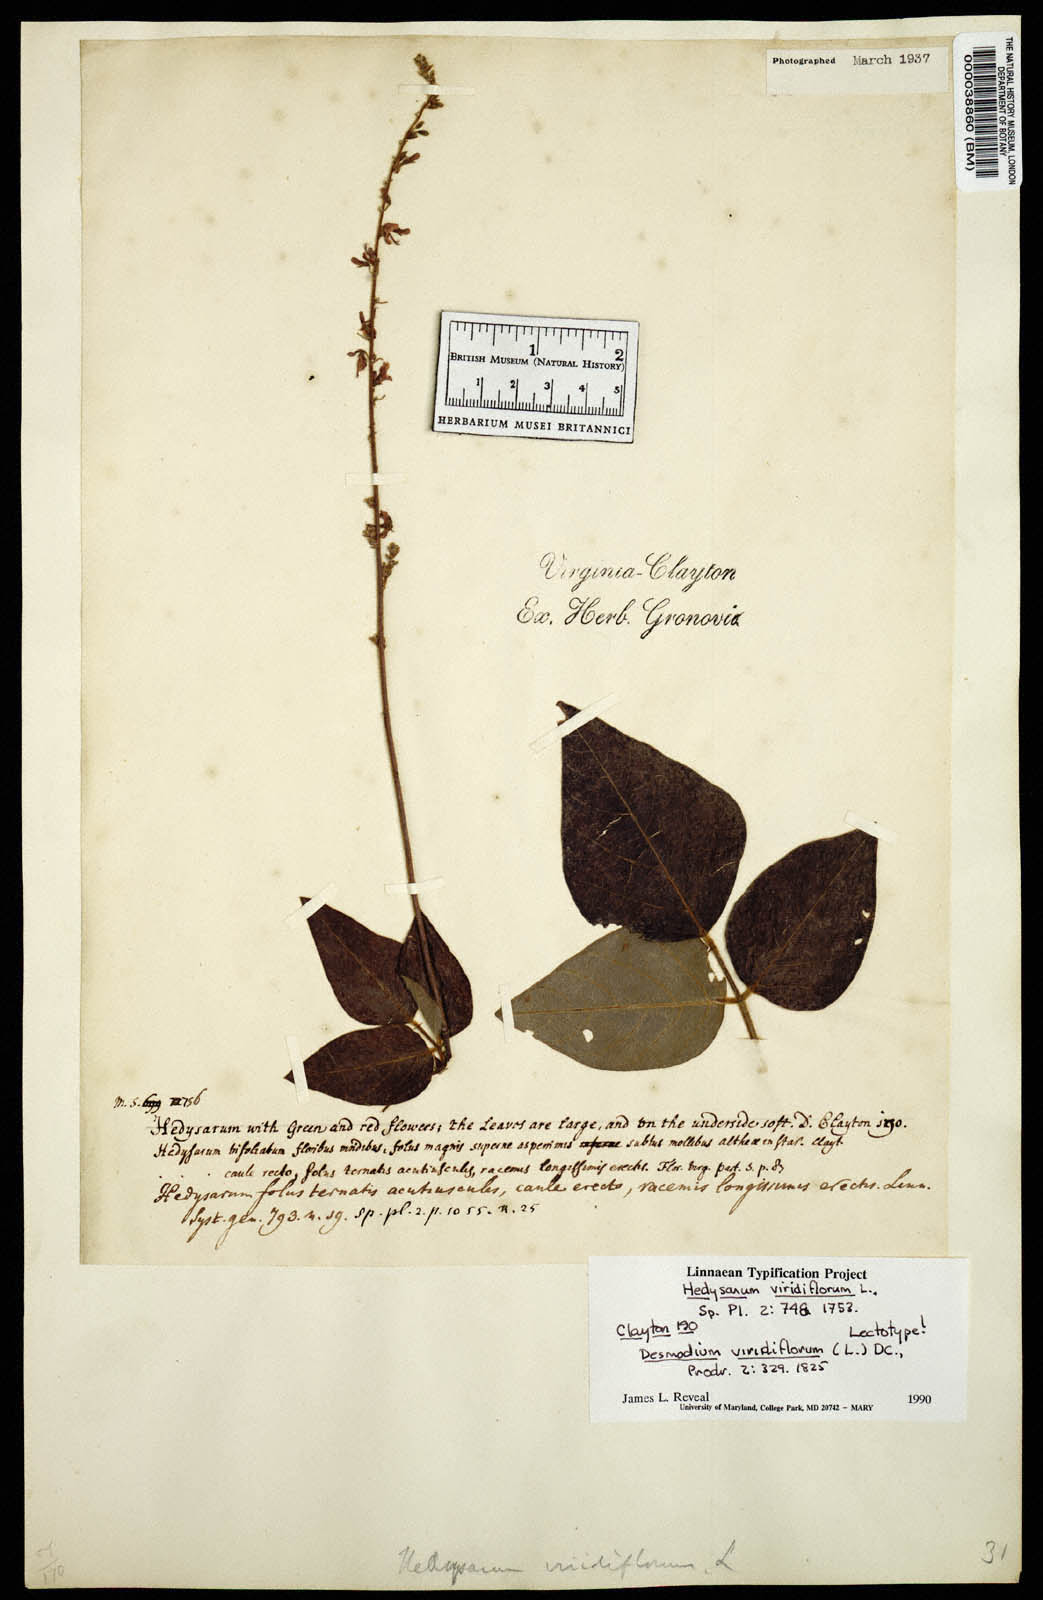 Photographed March 1937
THE NATURAL HISTORY MUSEUM, LONDON
DEPARTMENT OF BOTANY
000038860 (BM)
1 2
BRITISH MUSEUM (NATURAL HISTORY)
1 2 3 4 5
HERBARIUM MUSEI BRITANNICI
Virginia-Clayton
Ex. Herb. Gronovi
m. s. 699 756
Hedysarum with Green and red flowers; the leaves are large, and on the underside soft. D. Clayton 190.
Hedysarum trifoliatum floribus foliis magnis superne asperrimis subtus mollibus altheæ instar. Clayt.
caule recto, foliis ternatis acutiusculis, racemis longissimis erectis. Flor. Virg. part. 3. p. 87
Hedysarum foliis ternatis acutiusculis, caule erecto, racemis longissimis erectis. Linn.
Syst. gen. 793. n. 19. Sp. pl. 2. p. 1055. n. 25
Linnaean Typification Project
Hedysarum viridiflorum L.,
Sp. Pl. 2: 748 1753.
Clayton 190 Lectotype!
Desmodium viridiflorum (L.) DC.,
Prodr. 2: 329. 1825
James L. Reveal 1990
University of Maryland, College Park, MD 20742 – MARY
Hedysarum viridiflorum, L
31